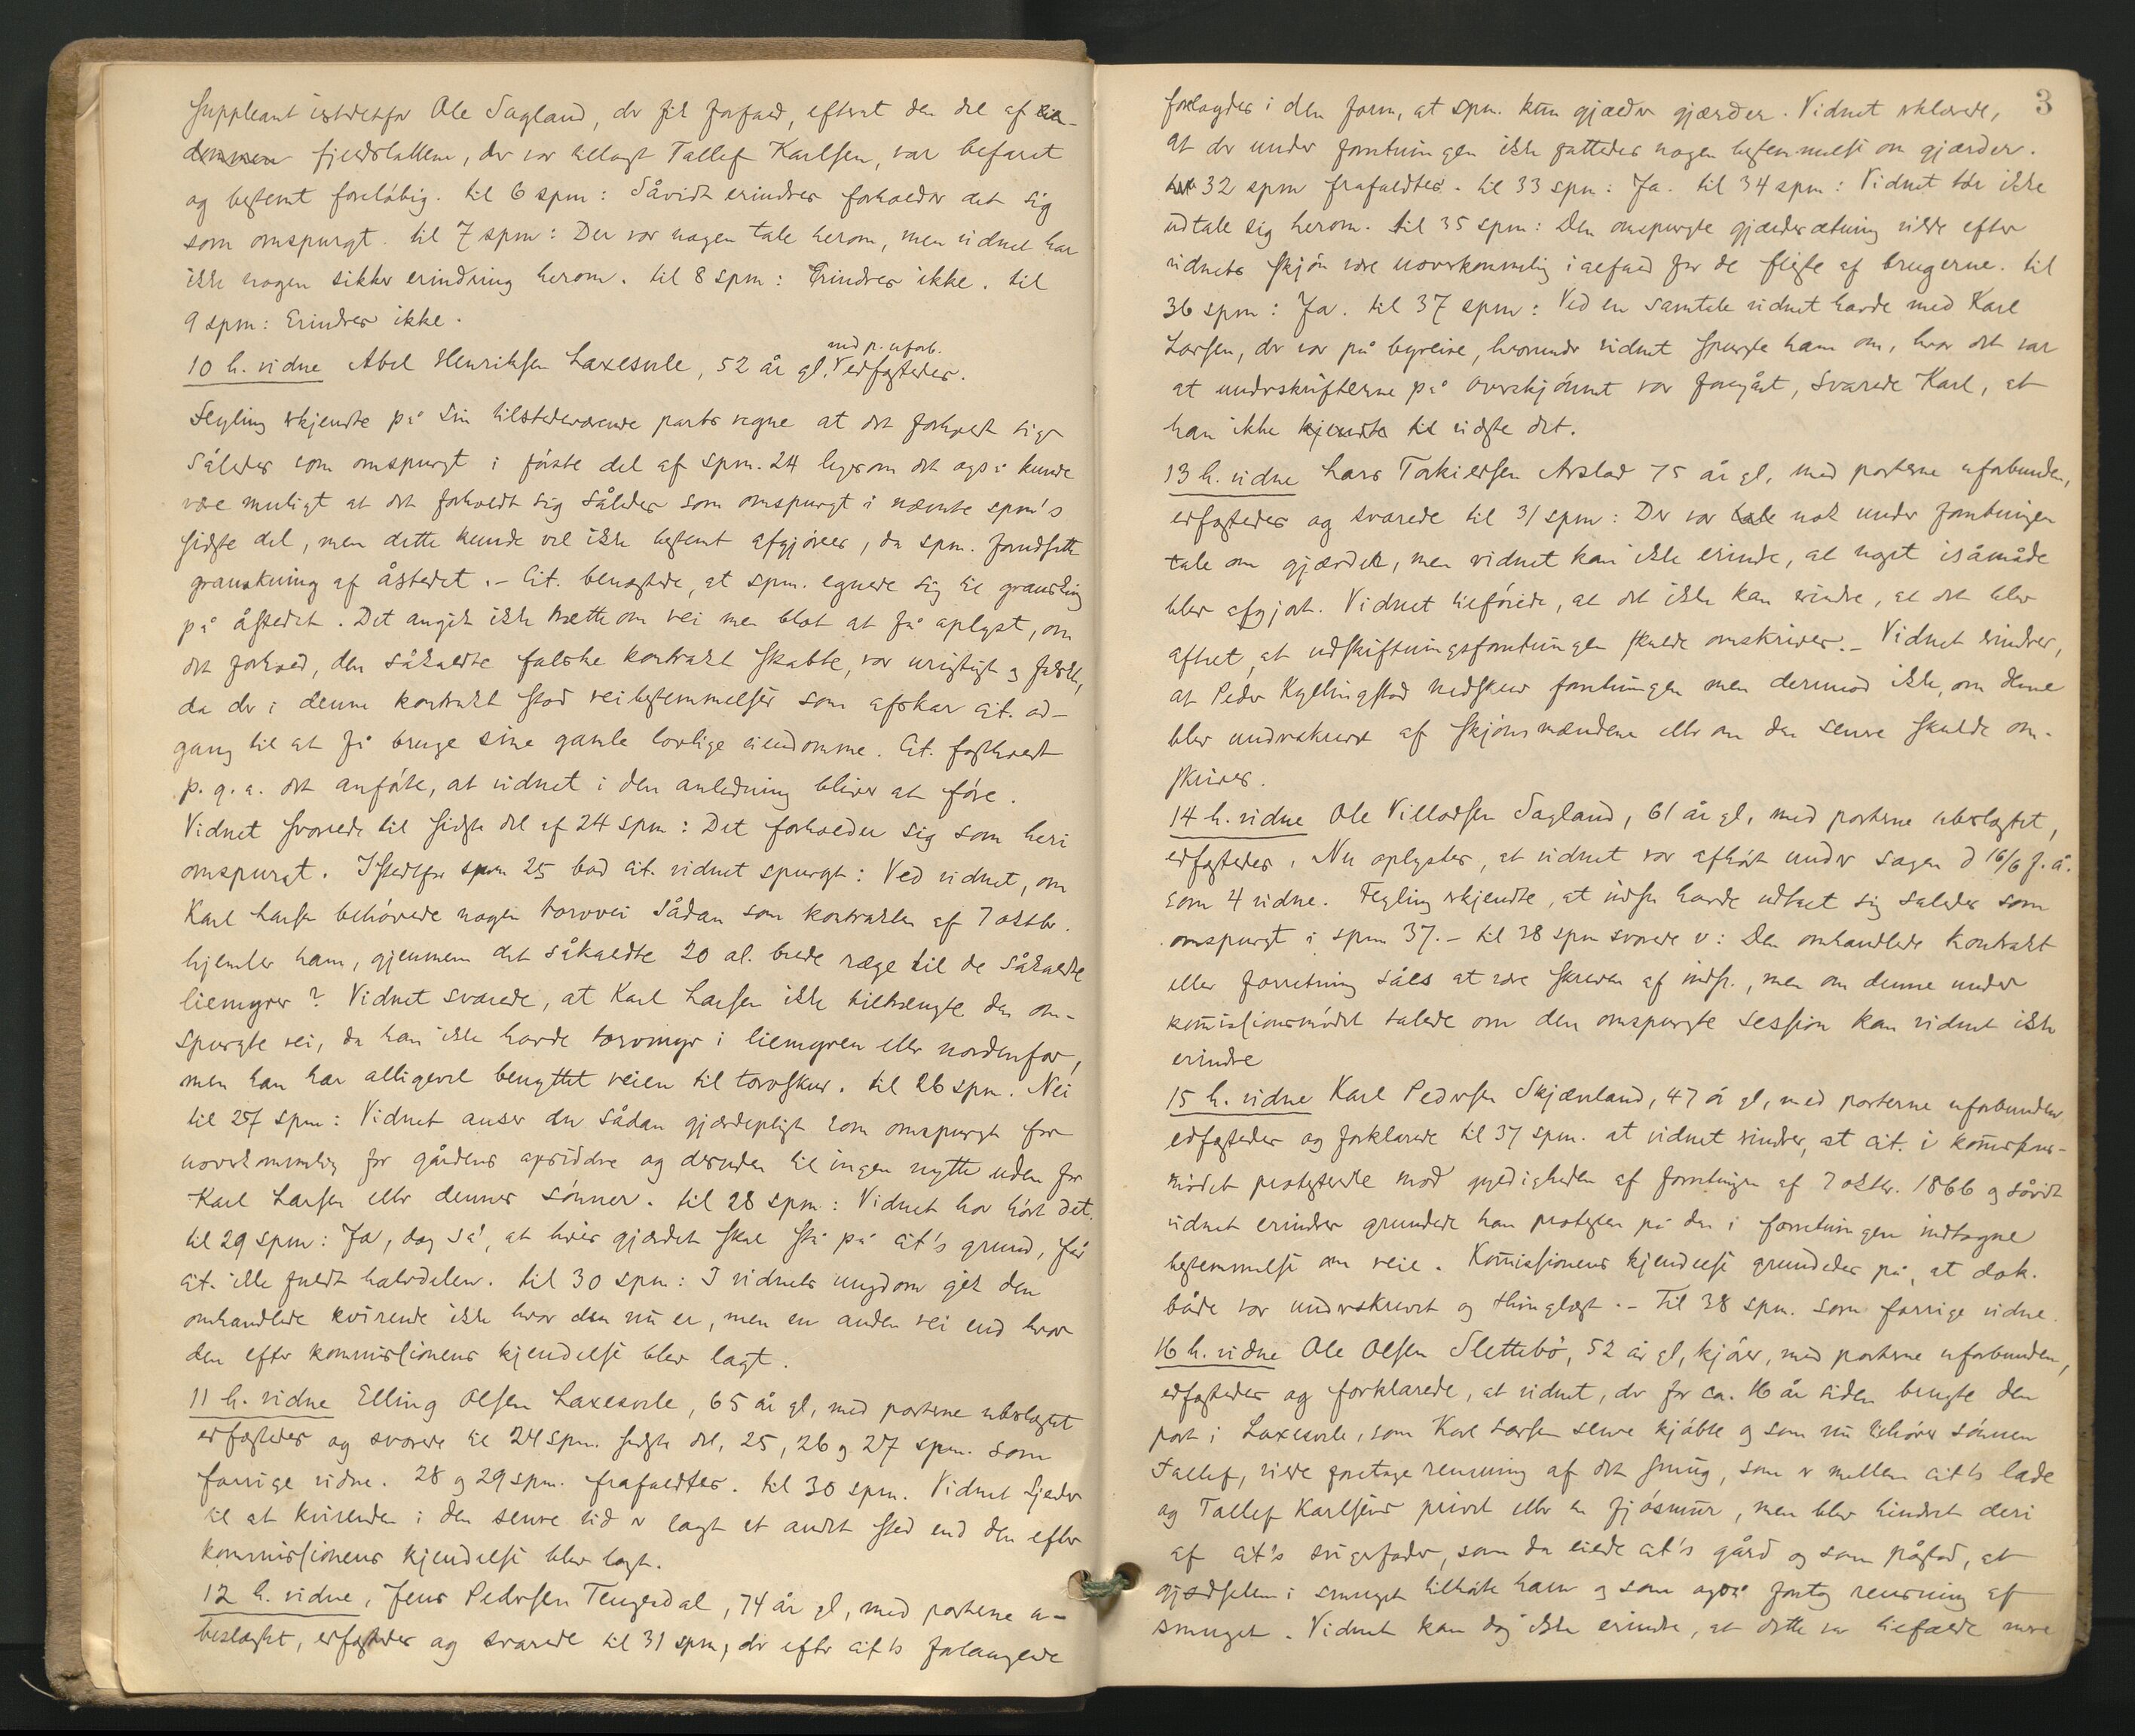 Suppleant istedetfor Ole Sagland, der fik forfald, efterat den del af
fjeldstallene, der var tillagt Tallef Karlsen, var befaret
og bestemt foreløbig. til 6 spm: Såvidt erindres forholder det sig
som omspurgt. til 7 spm: Der var nogen tale herom, men vidnet har
ikke nogen sikker erindring herom. til 8 spm: Erindres ikke. til
9 spm: Erindres ikke.
med p. uforb.
10 h. vidne Abel Henriksen Laxesvele, 52 år gl. Vedfæstedes.
Fegling erkjendte på sin tilstedeværende parts vegne at det forholdt sig
således som omspurgt i første del af spm. 24 ligesom det også kunde
være muligt at det forholdt sig således som omspurgt i nævnte spm's
sidste del, men dette kunde vel ikke bestemt afgjøres, da spm. forudsatte
granskning af åstedet. – Cit. benægtede, at spm. egnede sig til granskning
på åstedet. Det angik ikke trætte om vei men blot at få oplyst, om
det forhold, den såkaldte falske kontrakt skabte, var urigtigt og falskt,
da der i denne kontrakt stod veibestemmelser som afskar cit. ad-
gang til at få bruge sine gamle lovlige eiendomme. Cit. fastholdt
p. g. a. det anførte, at vidnet i den anledning bliver at føre.
Vidnet svarede til sidste del af 24 spm: Det forholder sig som heri
omspurgt. Istedetfor spm 25 bad cit. vidnet spurgt: Ved vidnet, om
Karl Larsen behøvede nogen torvvei sådan som kontrakten af 7 oktbr.
hjemler ham, gjennem det såkaldte 20 al. brede ræge til de såkaldte
liemyrer? Vidnet svarede, at Karl Larsen ikke tiltrængte den om-
spurgte vei, da han ikke havde torvmyr i liemyren eller nordenfor,
men han har alligevel benyttet veien til torvskur. til 26 spm. Nei
til 27 spm: Vidnet anser en sådan gjærdepligt som omspurgt for
uoverkommelig for gårdens opsiddere og desuden til ingen nytte uden for
Karl Larsen eller dennes sønner. til 28 spm: Vidnet har hørt det.
til 29 spm: Ja, dog så, at hvis gjærdet skal stå på cit's grund, får
cit. ikke fuldt halvdelen. til 30 spm: I vidnets ungdom gik den
omhandlede kvirende ikke hvor den nu er, men en anden vei end hvor
den efter kommissionens kjendelse blev lagt.
11 h. vidne Elling Olsen Laxesvele, 65 år gl, med parterne ubeslægtet
edfæstedes og svarede til 24 spm. sidste del, 25, 26 og 27 spm. som
forrige vidne. 28 og 29 spm. frafaldtes. til 30 spm. Vidnet kjender
til at kvirenden i den senere tid er lagt et andet sted end den efter
kommissionens kjendelse blev lagt.
12 h. vidne, Jens Pedersen Tengesdal, 74 år gl, med parterne u-
beslægtet, edfæstedes og svarede til 31 spm, der efter cit's forlangende
3
forlagdes i den form, at spm. kun gjælder gjærder. Vidnet erklærede,
at der under forretningen ikke fattedes nogen bestemmelse om gjærder.
32 spm frafaldtes. til 33 spm: Ja. til 34 spm: Vidnet tør ikke
udtale sig herom. til 35 spm: Den omspurgte gjærdesætning vilde efter
vidnets skjøn være uoverkommelig i alfald for de fleste af brugerne. til
36 spm: Ja. til 37 spm: Ved en samtale vidnet havde med Karl
Larsen, der var på byreise, hvorunder vidnet spurgte ham om, hvor det var
at underskrifterne på overskjønnet var foregået, svarede Karl, at
han ikke kjendte til vidste det.
13 h. vidne Lars Torkildsen Arstad 75 år gl, med parterne uforbunden,
edfæstedes og svarede til 31 spm: Der var tale nok under forretningen
tale om gjærder, men vidnet kan ikke erindre, at noget isåmåde
blev afgjort. Vidnet tilføiede, at det ikke kan erindre, at det blev
aftalt, at udskiftningsforretningen skulde omskrives. – Vidnet erindrer,
at Peder Kyllingstad nedskrev forretningen men derimod ikke, om denne
blev underskrevet af skjønsmændene eller om den senere skulde om-
skrives.
14 h. vidne Ole Villadsen Sagland, 61 år gl, med parterne ubeslægtet,
edfæstedes. Nu oplystes, at vidnet var afhørt under sagen d 16/6 f. å.
som 4 vidne. Fegling erkjendte, at indst. havde udtalt sig således som
omspurgt i spm 37. – til 38 spm svarede v: Den omhandlede kontrakt
eller forretning såes at være skreven af indst., men om denne under
kommissionsmødet talede om den omspurgte session kan vidnet ikke
erindre
15 h. vidne Karl Pedersen Skjævland, 47 år gl, med parterne uforbunden
edfæstedes og forklarede til 37 spm. at vidnet erindrer, at cit. i komissions-
mødet protesterede mod gyldigheden af forretningen af 7 oktbr. 1866 og såvidt
vidnet erindrer grundede han protesten på den i forretningen indtagne
bestemmelse om veie. Komissionens kjendelse grundedes på, at dok.
både var underskrevet og thinglæst. – Til 38 spm. som forrige vidne.
16 h. vidne Ole Olsen Slettebø, 52 år gl, kjører, med parterne uforbunden,
edfæstedes og forklarede, at vidnet, der for ca. 16 år siden brugte den
part i Laxesvele, som Karl Larsen senere kjøbte og som nu tilhører sønnen
Tallef, vilde foretage rensning af det smug, som er mellem cit's lade
og Tallef Karlsens privet eller en fjøsmur, men blev hindret deri
af cit's svigerfader, som da eiede cit's gård og som påstod, at
gjødselen i smuget tilhørte ham og som også foretog rensning af
smuget. Vidnet kan dog ikke erindre, at dette var tilfælde mere